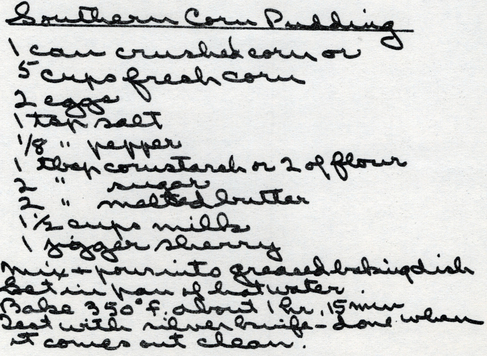 Southern Corn Pudding
1 can crushed corn or
5 cups fresh corn
2 eggs
1 tsp salt
1/8 " pepper
1 tbsp cornstarch or 2 of flour
2 " sugar
2 " melted butter
1 1/2 cups milk
1 jigger sherry
mix + pour into greased baking dish
Set in pan of hot water.
Bake 350° f. about 1 hr. 15 min
Test with silver knife - done when
it comes out clean.